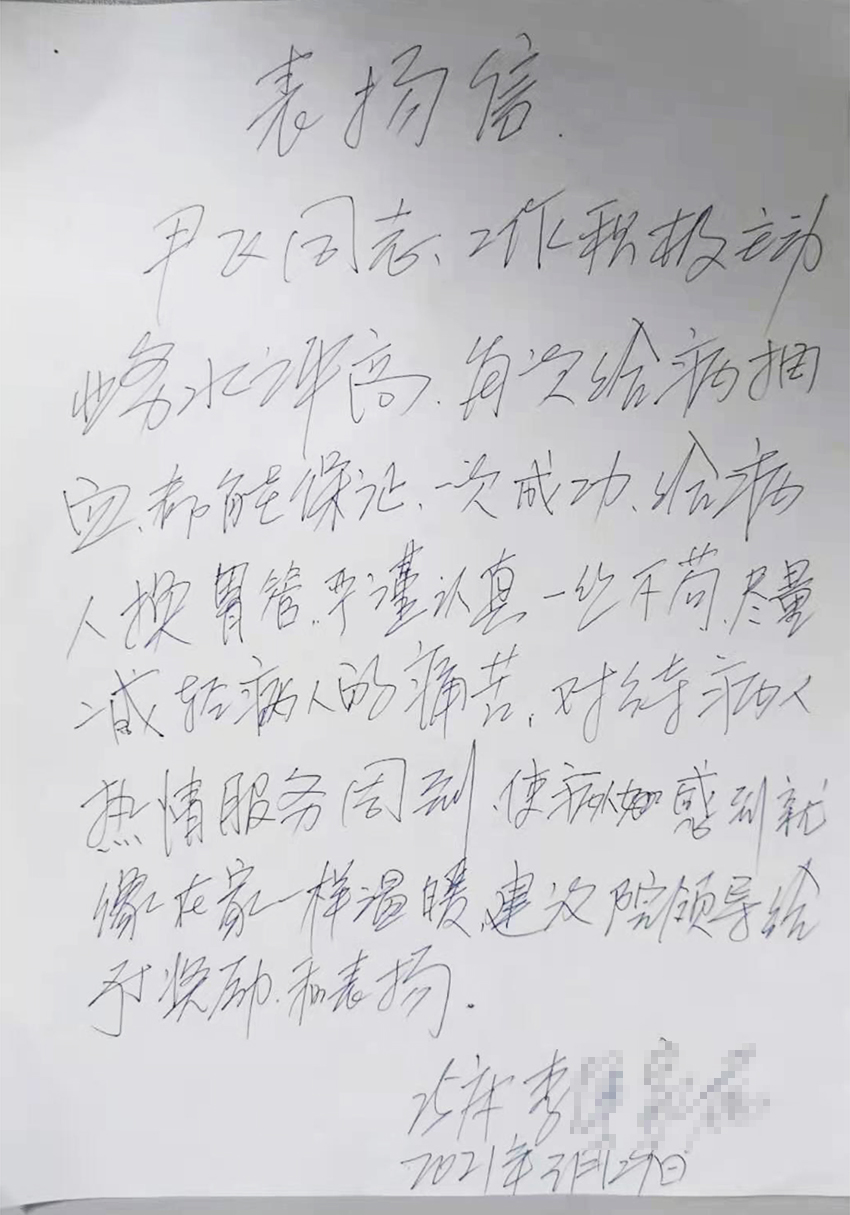 表扬信.
尹飞同志、工作积极主动
业务水评高、每次给病抽
血、都能保证、一次成功、给病
人换胃管、严谨认真一丝不苟、尽量
减轻病人的痛苦、对待病人
热情服务周到、使病人感到就
像在家一样温暖、建议院领导给
予奖励、和表扬.
床 李
2021年3月29日